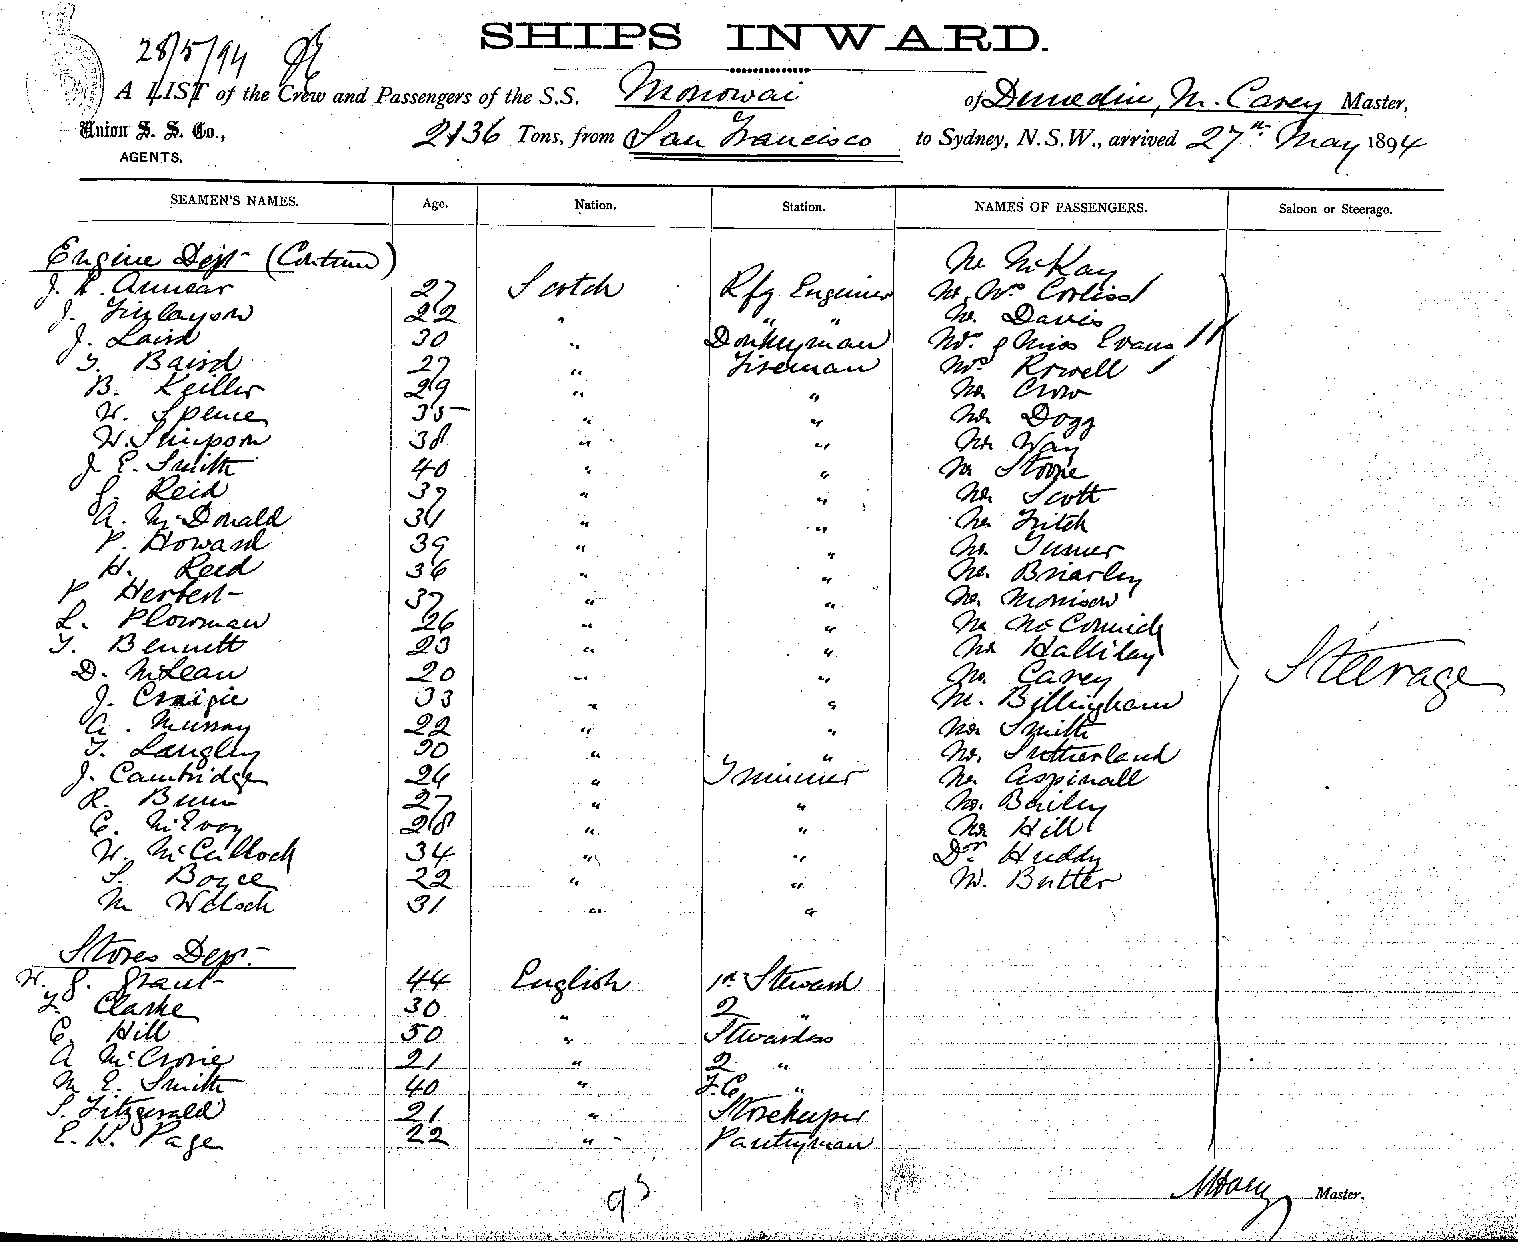 SHIPS INWARD.
28/5/94
A LIST of the Crew and Passengers of the S.S. Monowai of Dunedin, M. Carey Master,
Union S. S. Co., 2136 Tons, from San Francisco to Sydney, N.S.W., arrived 27th May 1894
AGENTS.
SEAMEN'S NAMES. Age. Nation. Station. NAMES OF PASSENGERS. Saloon or Steerage.
Engine Dept (Continued) Mr McKay
J. R. Annear 27 Scotch Rfg Engineer Mr Mrs Corliss
J. Finlayson 22 " " " Mr. Davis
J. Laird 30 " Donkeyman Mrs. & Miss Evans
T. Baird 27 " Fireman Mrs Rowell
B. Keiller 29 " " Mr Crow
W. Spence 35 " " Mr Dogg
W. Simpson 38 " " Mr Way
J. E. Smith 40 " " Mr Stone
G. Reid 37 " " Mr Scott
A. McDonald 31 " " Mr Fitch
P. Howard 39 " " Mr. Turner
H. Reid 36 " " Mr. Briarley
P. Herbert 37 " " Mr. Morrison
L. Plowman 26 " " Mr McCormick
T. Bennett 23 " " Mr Halliday
D. McLean 20 " " Mr. Carey Steerage
J. Craigie 33 " " M. Billingham
A. Murray 22 " " Mr Smith
T. Langley 20 " " Mr. Sutherland
J. Cambridge 26 " Trimmer Mr Aspinall
R. Bunn 27 " " Mr. Bailey
C. McEvoy 28 " " Mr Hill
W. McCulloch 34 " " Dr Huddy
S. Boyce 22 " " M. Butter
M 31 " "
Stores Dept.
W. G. Grant 44 English 1st Steward
F. Clarke 30 " 2 "
C. Hill 50 " Stewardess
A McCrorie 21 " 2 "
M E. Smith 40 " F.C. "
S. Fitzgerald 21 " Storekeeper
E. H. Page 22 " Pantryman
95 MCarey Master.